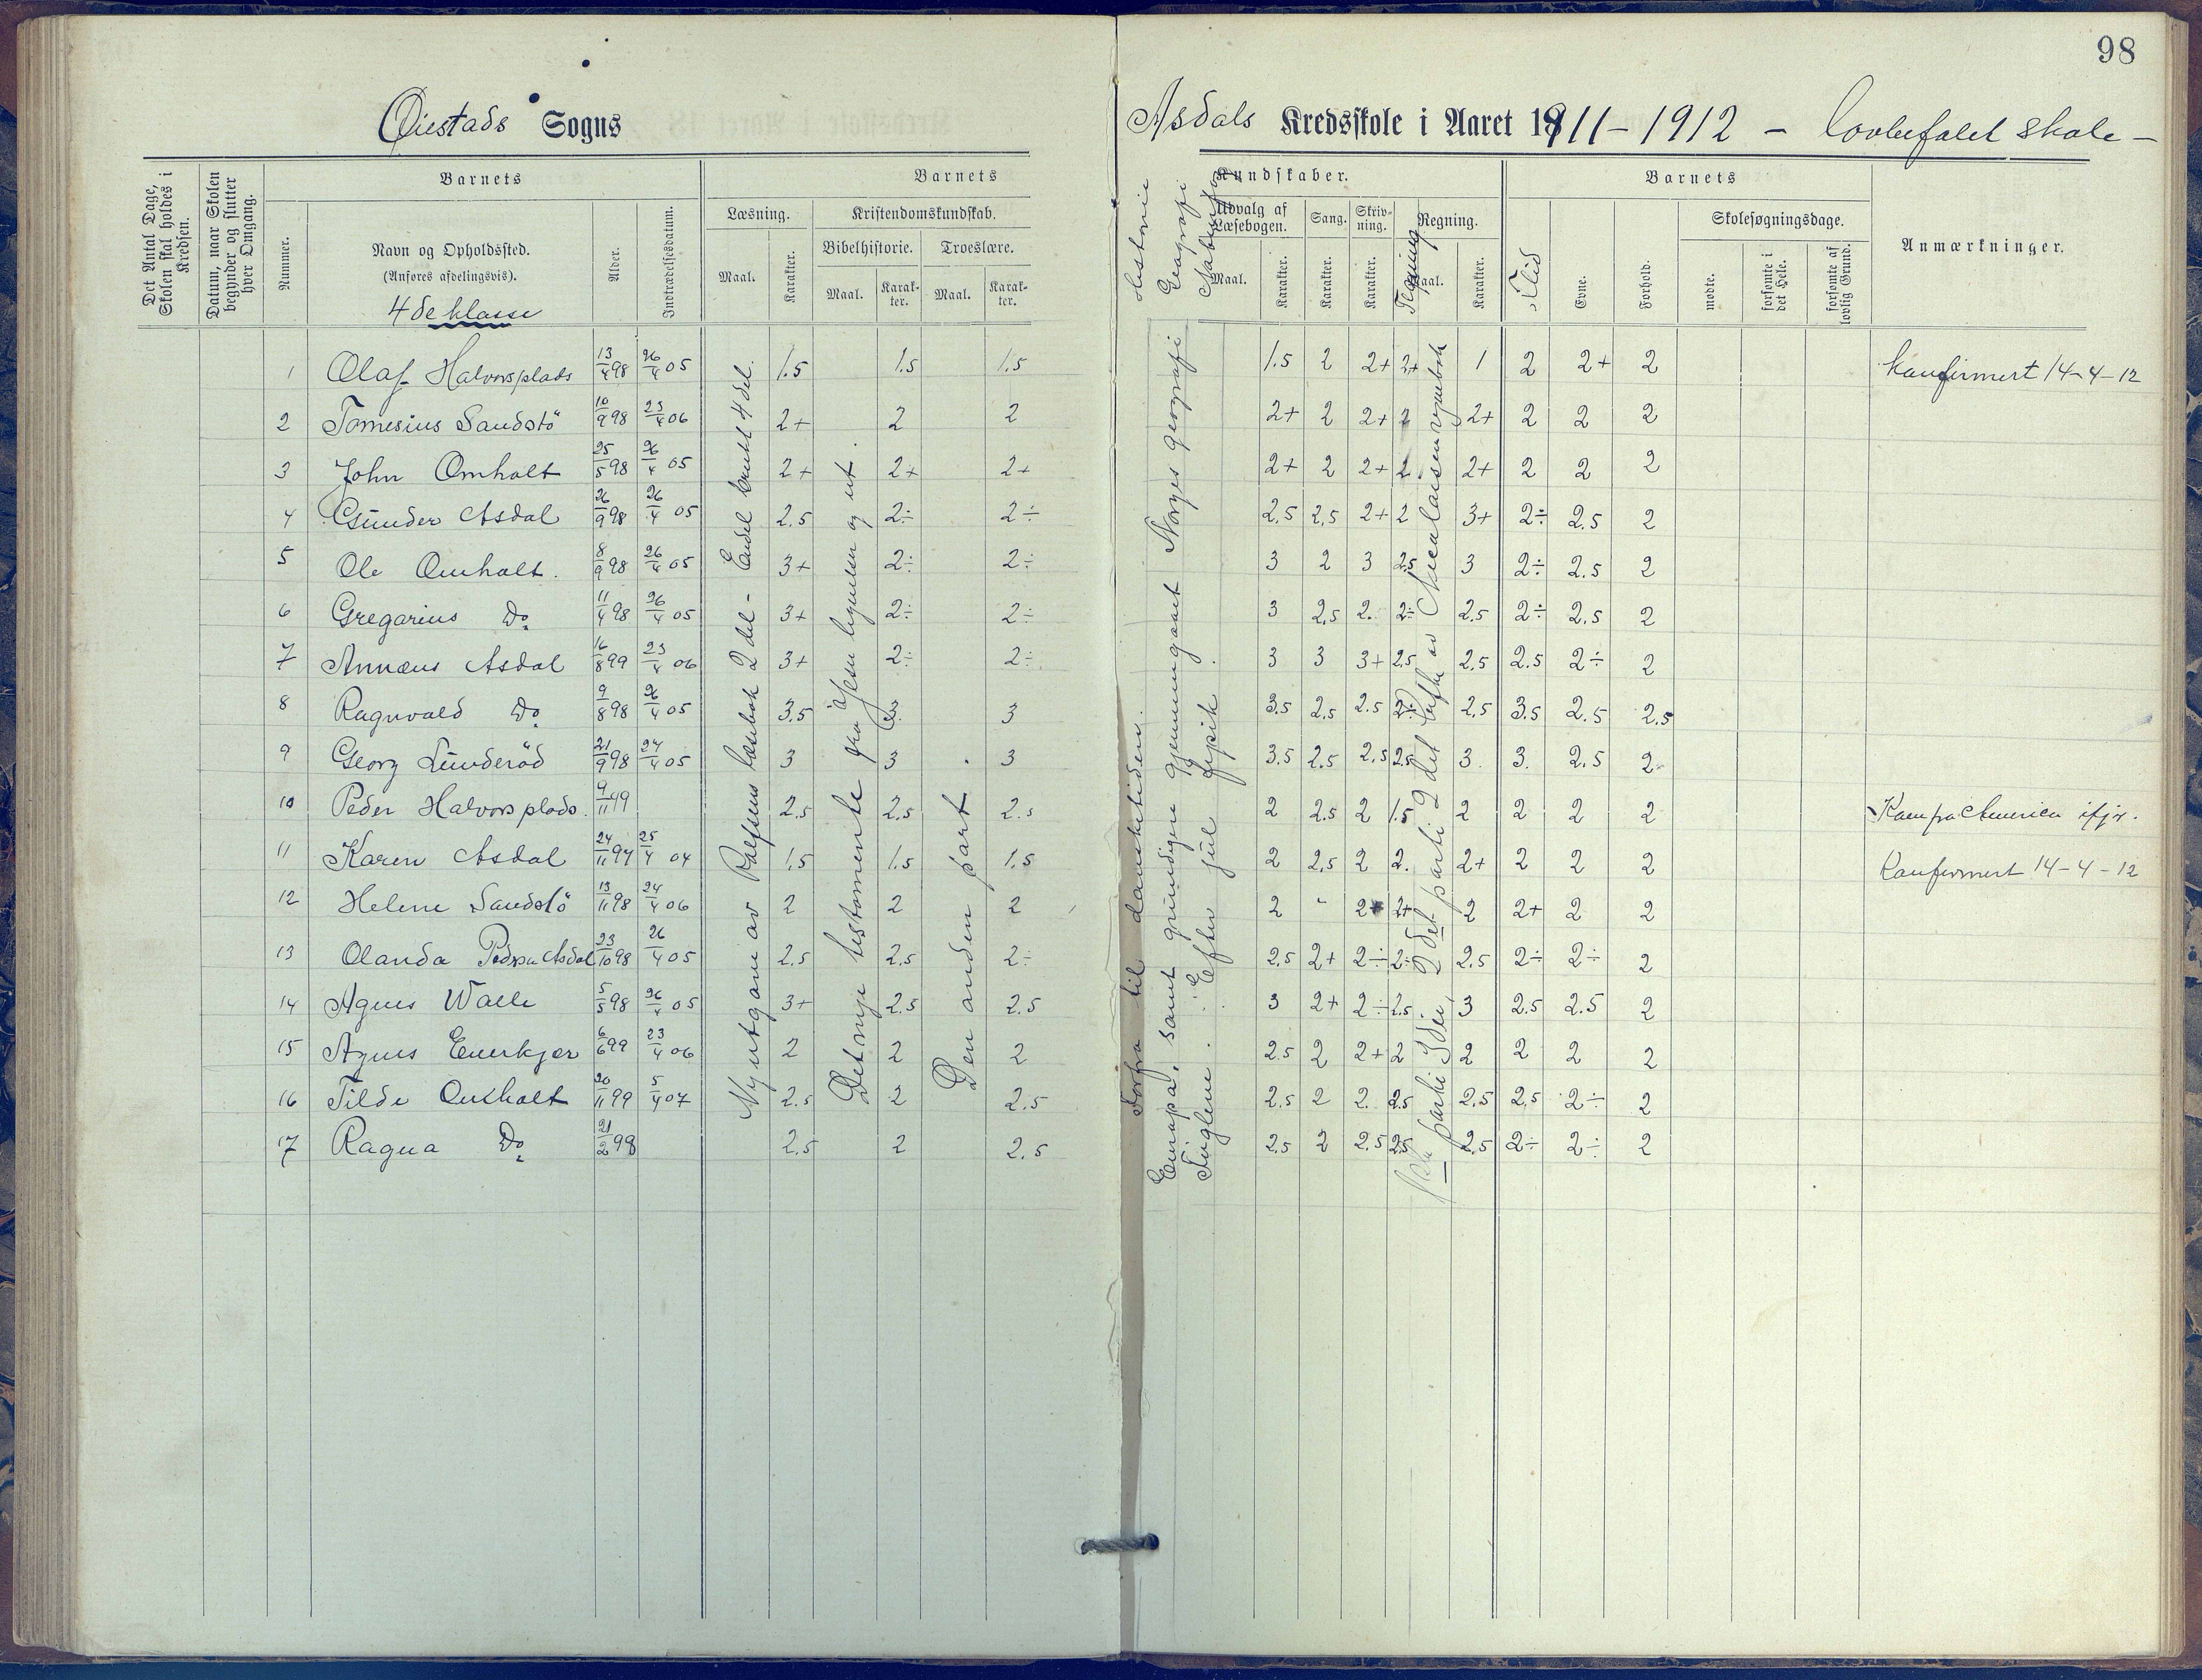 98
Øiestads Sogns
Asdals Kredsskole i Aaret 1911-1912 - lovbefalet skole -
Det Antal Dage, Skolen skal holdes i Kredsen.
Datum, naar Skolen begynder og slutter hver Omgang.
Nummer.
Barnets
Navn og Opholdssted.
(Anføres afdelingsvis).
4de klasse
Alder.
Indtrædelsesdatum.
Barnets
Læsning.
Maal.
Karakter.
Kristendomskundskab.
Bibelhistorie.
Maal.
Karakter.
Troeslære.
Maal.
Karakter.
Historie
Geografi
Kundskaber.
Udvalg af Læsebogen.
Maal.
Karakter.
Sang.
Karakter.
Skrivning.
Karakter.
Tegning
Regning.
Maal.
Karakter.
Barnets
Flid
Evne.
Forhold.
Skolesøgningsdage.
mødte.
forsømte i det Hele.
forsømte af lovlig Grund.
Anmærkninger.
1 Olaf Halvorsplads 13/4 98 26/4 05 1.5 1.5 1.5 1.5 2 2+ 2+ 1 2 2+ 2 Konfirmert 14-4-12
2 Tomesius Sandstö 10/9 98 23/4 06 2+ 2 2 2+ 2 2+ 2 2+ 2 2 2
3 John Omholt 25/5 98 26/4 05 2+ 2+ 2+ 2+ 2 2+ 2 2+ 2 2 2
4 Gunder Asdal 26/9 98 26/4 05 2.5 2÷ 2÷ 2.5 2.5 2+ 2 3+ 2÷ 2.5 2
5 Ole Omholt. 8/9 98 26/4 05 3+ 2÷ 2÷ 3 2 3 2.5 3 2÷ 2.5 2
6 Gregarius Do 11/4 98 26/4 05 3+ 2÷ 2÷ 3 2.5 2. 2÷ 2.5 2÷ 2.5 2
7 Annæus Asdal 16/8 99 23/4 06 3+ 2÷ 2÷ 3 3 3+ 2.5 2.5 2.5 2÷ 2
8 Ragnvald Do 9/8 98 26/4 05 3.5 3. 3 3.5 2.5 2.5 2÷ 2.5 3.5 2.5 2.5
9 Georg Lunderöd 21/9 98 24/4 05 3 3 3 3.5 2.5 2.5 2.5 3. 3. 2.5 2
10 Peder Halvorsplads. 9/11 99 2.5 2.5 2.5 2 2.5 2 1.5 2 2 2 2 Kom fra Amerika ifjor.
11 Karen Asdal 24/11 97 25/4 04 1.5 1.5 1.5 2 2.5 2 2. 2+ 2 2 2 Konfirmert 14-4-12
12 Helene Sandstö 13/11 98 24/4 06 2 2 2 2 - 2+ 2+ 2 2+ 2 2
13 Olanda Asdal 23/10 98 26/4 05 2.5 2.5 2÷ 2.5 2+ 2÷ 2÷ 2.5 2÷ 2÷ 2
14 Agnes Walle 5/5 98 26/4 05 3+ 2.5 2.5 3 2+ 2÷ 2.5 3 2.5 2.5 2
15 Agnes Enerkjær 6/6 99 23/4 06 2 2 2 2.5 2 2+ 2 2 2 2 2
16 Tilde Omholt 20/11 99 5/4 07 2.5 2 2.5 2.5 2 2. 2.5 2.5 2.5 2÷ 2
17 Ragna Do 21/2 98 2.5 2 2.5 2.5 2 2.5 2.5 2.5 2÷ 2÷ 2
Ny utgave av Rolfsens læsebok 2 del - Endel brukt 4 del.
Det nye testamente fra Jesu lignelser og ut.
Den anden part.
Forfra til dansketiden.
Europa, samt grundigen gjennemgaaet Norges geografi
Fuglene. Efter jul fysik.
parti 3die, 2det parti 2det hefte av Nicolaisen regnebok